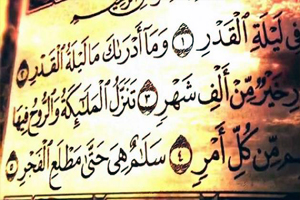 فِى لَيْلَةِ ٱلْقَدْرِ ١ وَمَآ أَدْرَىٰكَ مَا لَيْلَةُ ٱلْقَدْرِ ٢
رِ خَيْرٌ مِّنْ أَلْفِ شَهْرٍ ٣ تَنَزَّلُ ٱلْمَلَـٰٓئِكَةُ وَٱلرُّوحُ فِيهَا
م مِّن كُلِّ أَمْرٍ ٤ سَلَـٰمٌ هِىَ حَتَّىٰ مَطْلَعِ ٱلْفَجْرِ ٥